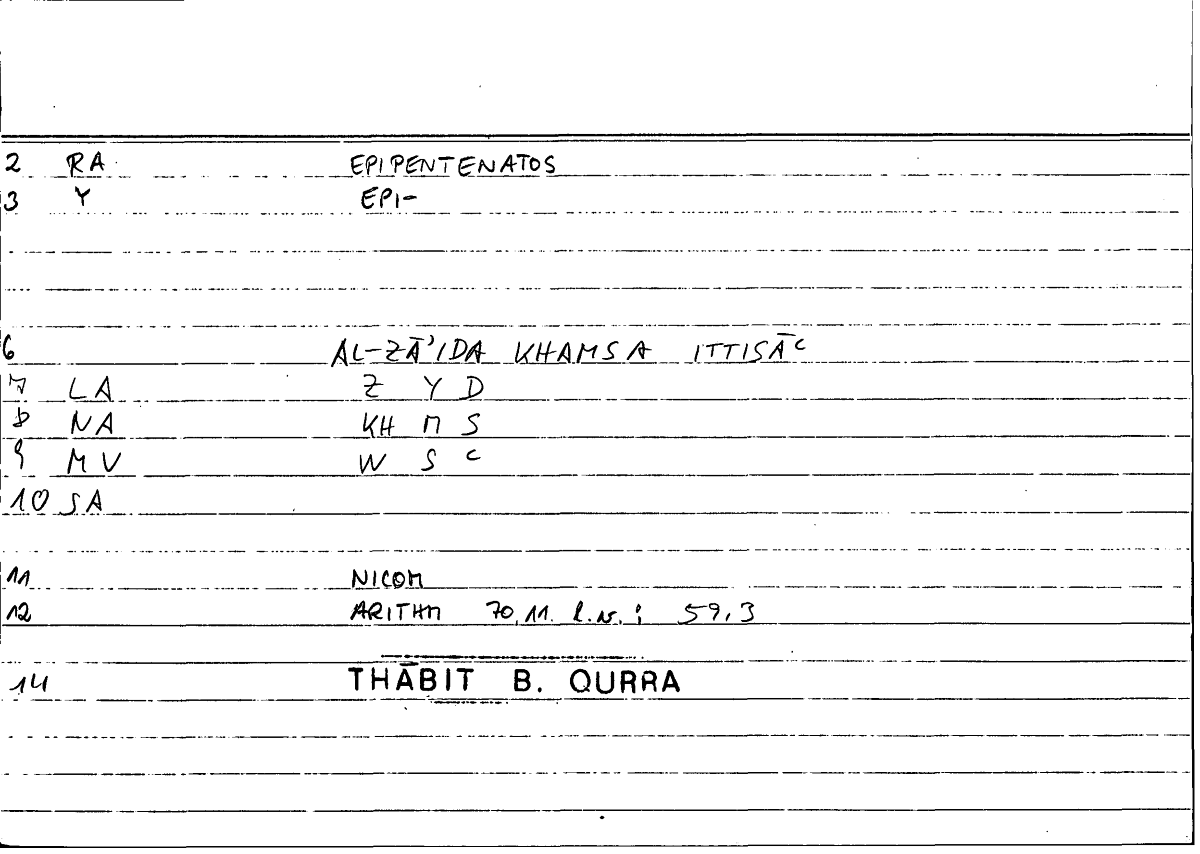 2 RA EPIPENTENATOS
3 Y EPI-
6 AL-ZĀʾIDA KHAMSA ITTISĀᶜ
7 LA Z Y D
8 NA KH M S
9 MV W S ᶜ
10 SA
11 NICOM
12 ARITHM 70,11. l.w.: 59,3
14 THĀBIT B. QURRA